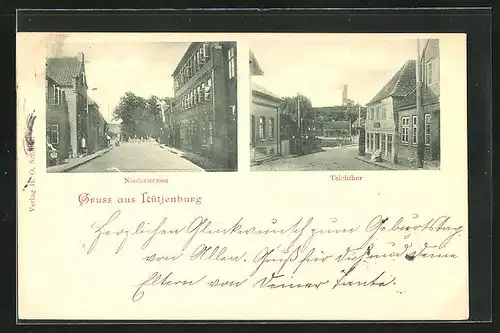 Niederstrasse
Teichthor
Verlag H. O.
Gruss aus Lütjenburg
Herzlichen Glückwunsch zum Geburtstag
von Allen. Gruß für Dich und deine
Eltern von Deiner Tante.